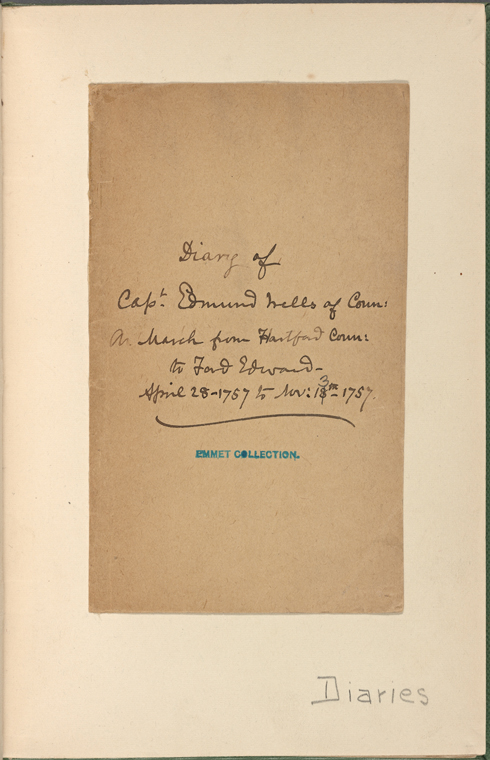 Diary of
Capt. Edmund Wells of Conn:
A. March from Hartford Conn:
to Ford Edward-
April 28-1757 to Nov: 13th 1757.
EMMET COLLECTION.
Diaries